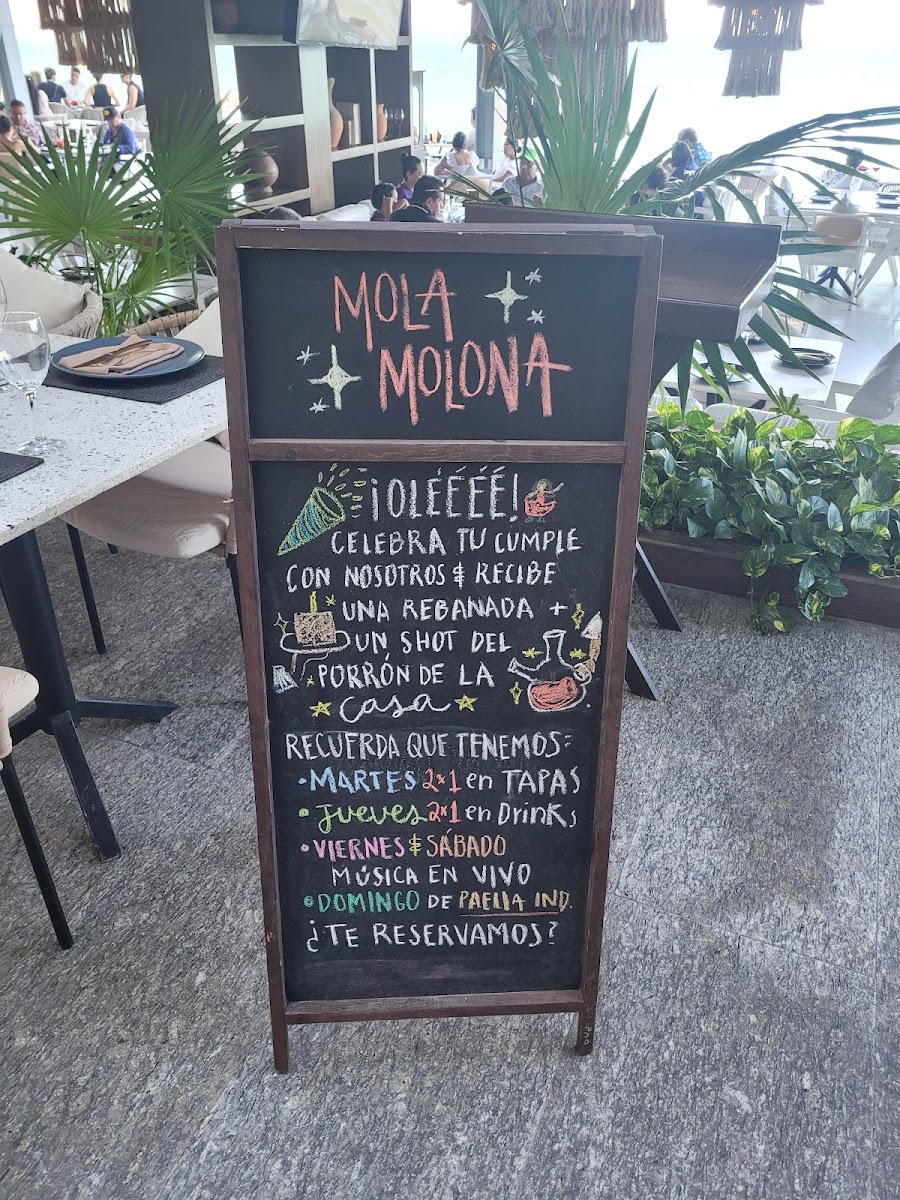 MOLA
MOLONA
¡OLÉÉÉÉ!
CELEBRA TU CUMPLE
CON NOSOTROS & RECIBE
UNA REBANADA +
UN SHOT DEL
PORRÓN DE LA
casa
RECUERDA QUE TENEMOS:
•MARTES 2x1 en TAPAS
•Jueves 2x1 en Drinks
•VIERNES & SÁBADO
MÚSICA EN VIVO
•DOMINGO DE PAELLA IND.
¿TE RESERVAMOS?